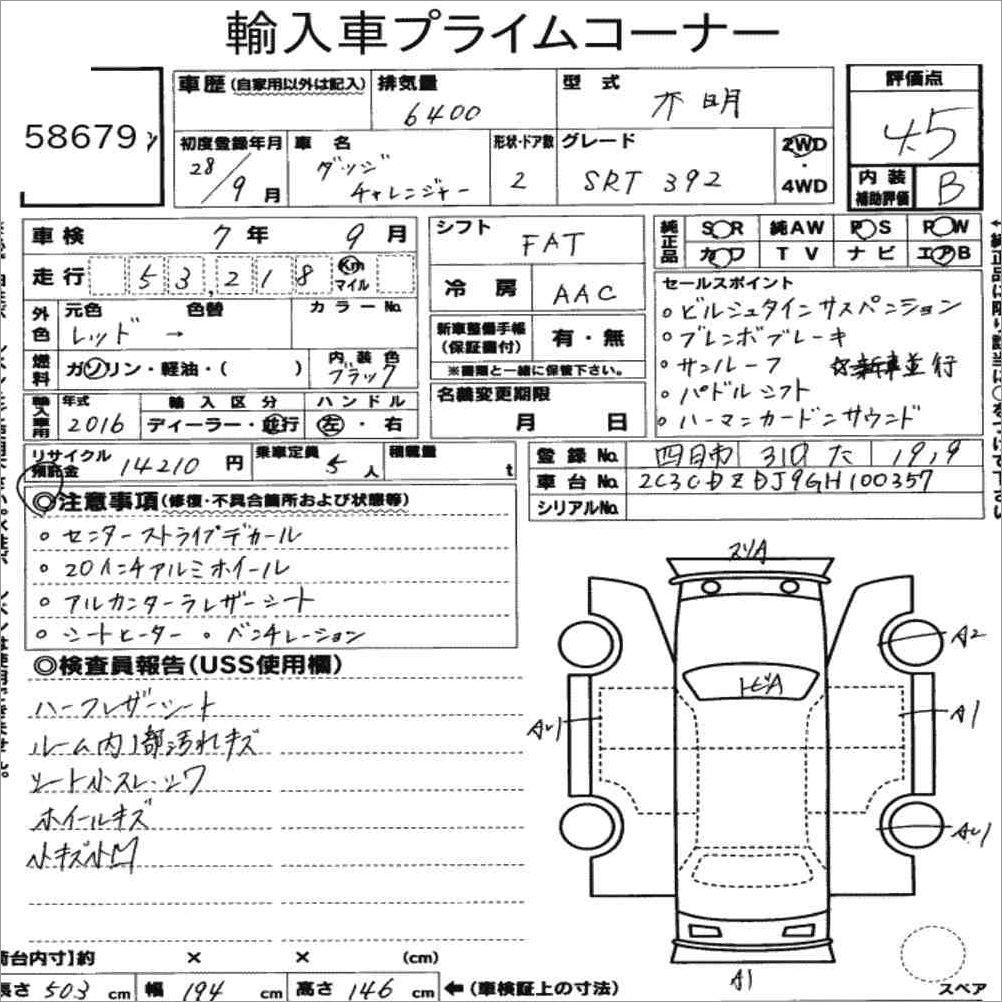 輸入車プライムコーナー
58679
車歴(自家用以外は記入)
排気量 6400
型式 不明
評価点 4.5
初度登録年月 28/9月
車名 ダッジ チャレンジャー
形状・ドア数 2
グレード SRT 392
2WD・4WD
内装補助評価 B
車検 7年 9月
シフト FAT
純正品 SR 純AW PS PW
カワ TV ナビ エアB
走行 53,218 Km マイル
冷房 AAC
セールスポイント
外色 元色 色替 カラーNo.
レッド →
。ビルシュタインサスペンション
。ブレンボブレーキ
新車整備手帳(保証書付) 有・無
※書類と一緒に保管下さい。
。サンルーフ ☆新車並行
燃料 ガソリン・軽油・( )
内装色 ブラック
。パドルシフト
名義変更期限 月 日
。ハーマンカードンサウンド
輸入車用 年式 2016
輸入区分 ディーラー・並行
ハンドル 左・右
リサイクル預託金 14210円
乗車定員 5人
積載量 t
登録No. 四日市 310 た 1919
車台No. 2C3CDZDJ9GH100357
シリアルNo.
◎注意事項(修復・不具合箇所および状態等)
。センターストライプデカール
。20インチアルミホイール
。アルカンターラレザーシート
。シートヒーター 。ベンチレーション
◎検査員報告(USS使用欄)
ハーフレザーシート
ルーム内1部汚れキズ
シート小スレ、シワ
ホイールキズ
小キズ小凹
スリA
A2
トビA
AU1
A1
AU1
A1
荷台内寸)約 × × (cm)
長さ 503 cm 幅 194 cm 高さ 146 cm ←(車検証上の寸法)
スペア